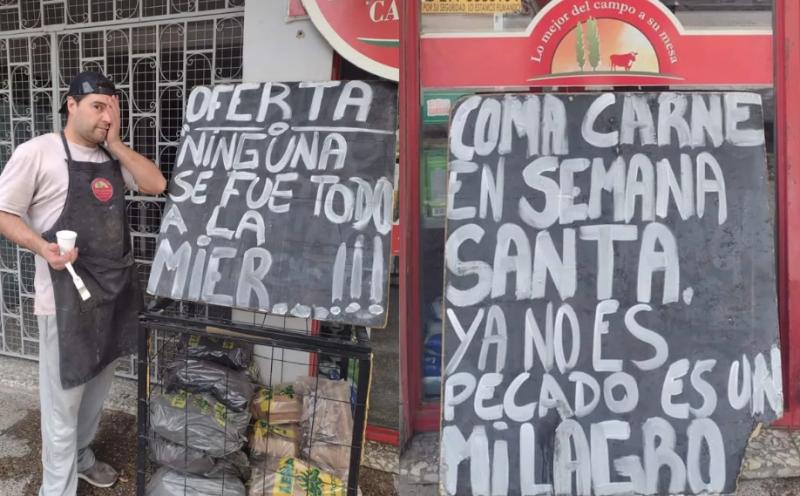 OFERTA
NINGUNA
SE FUE TODO
A LA
MIER...¡!!
CA
POR SU SEGURIDAD LO ESTAMOS FILMANDO
Lo mejor del campo a su mesa
COMA CARNE
EN SEMANA
SANTA.
YA NO ES
PECADO ES UN
MILAGRO